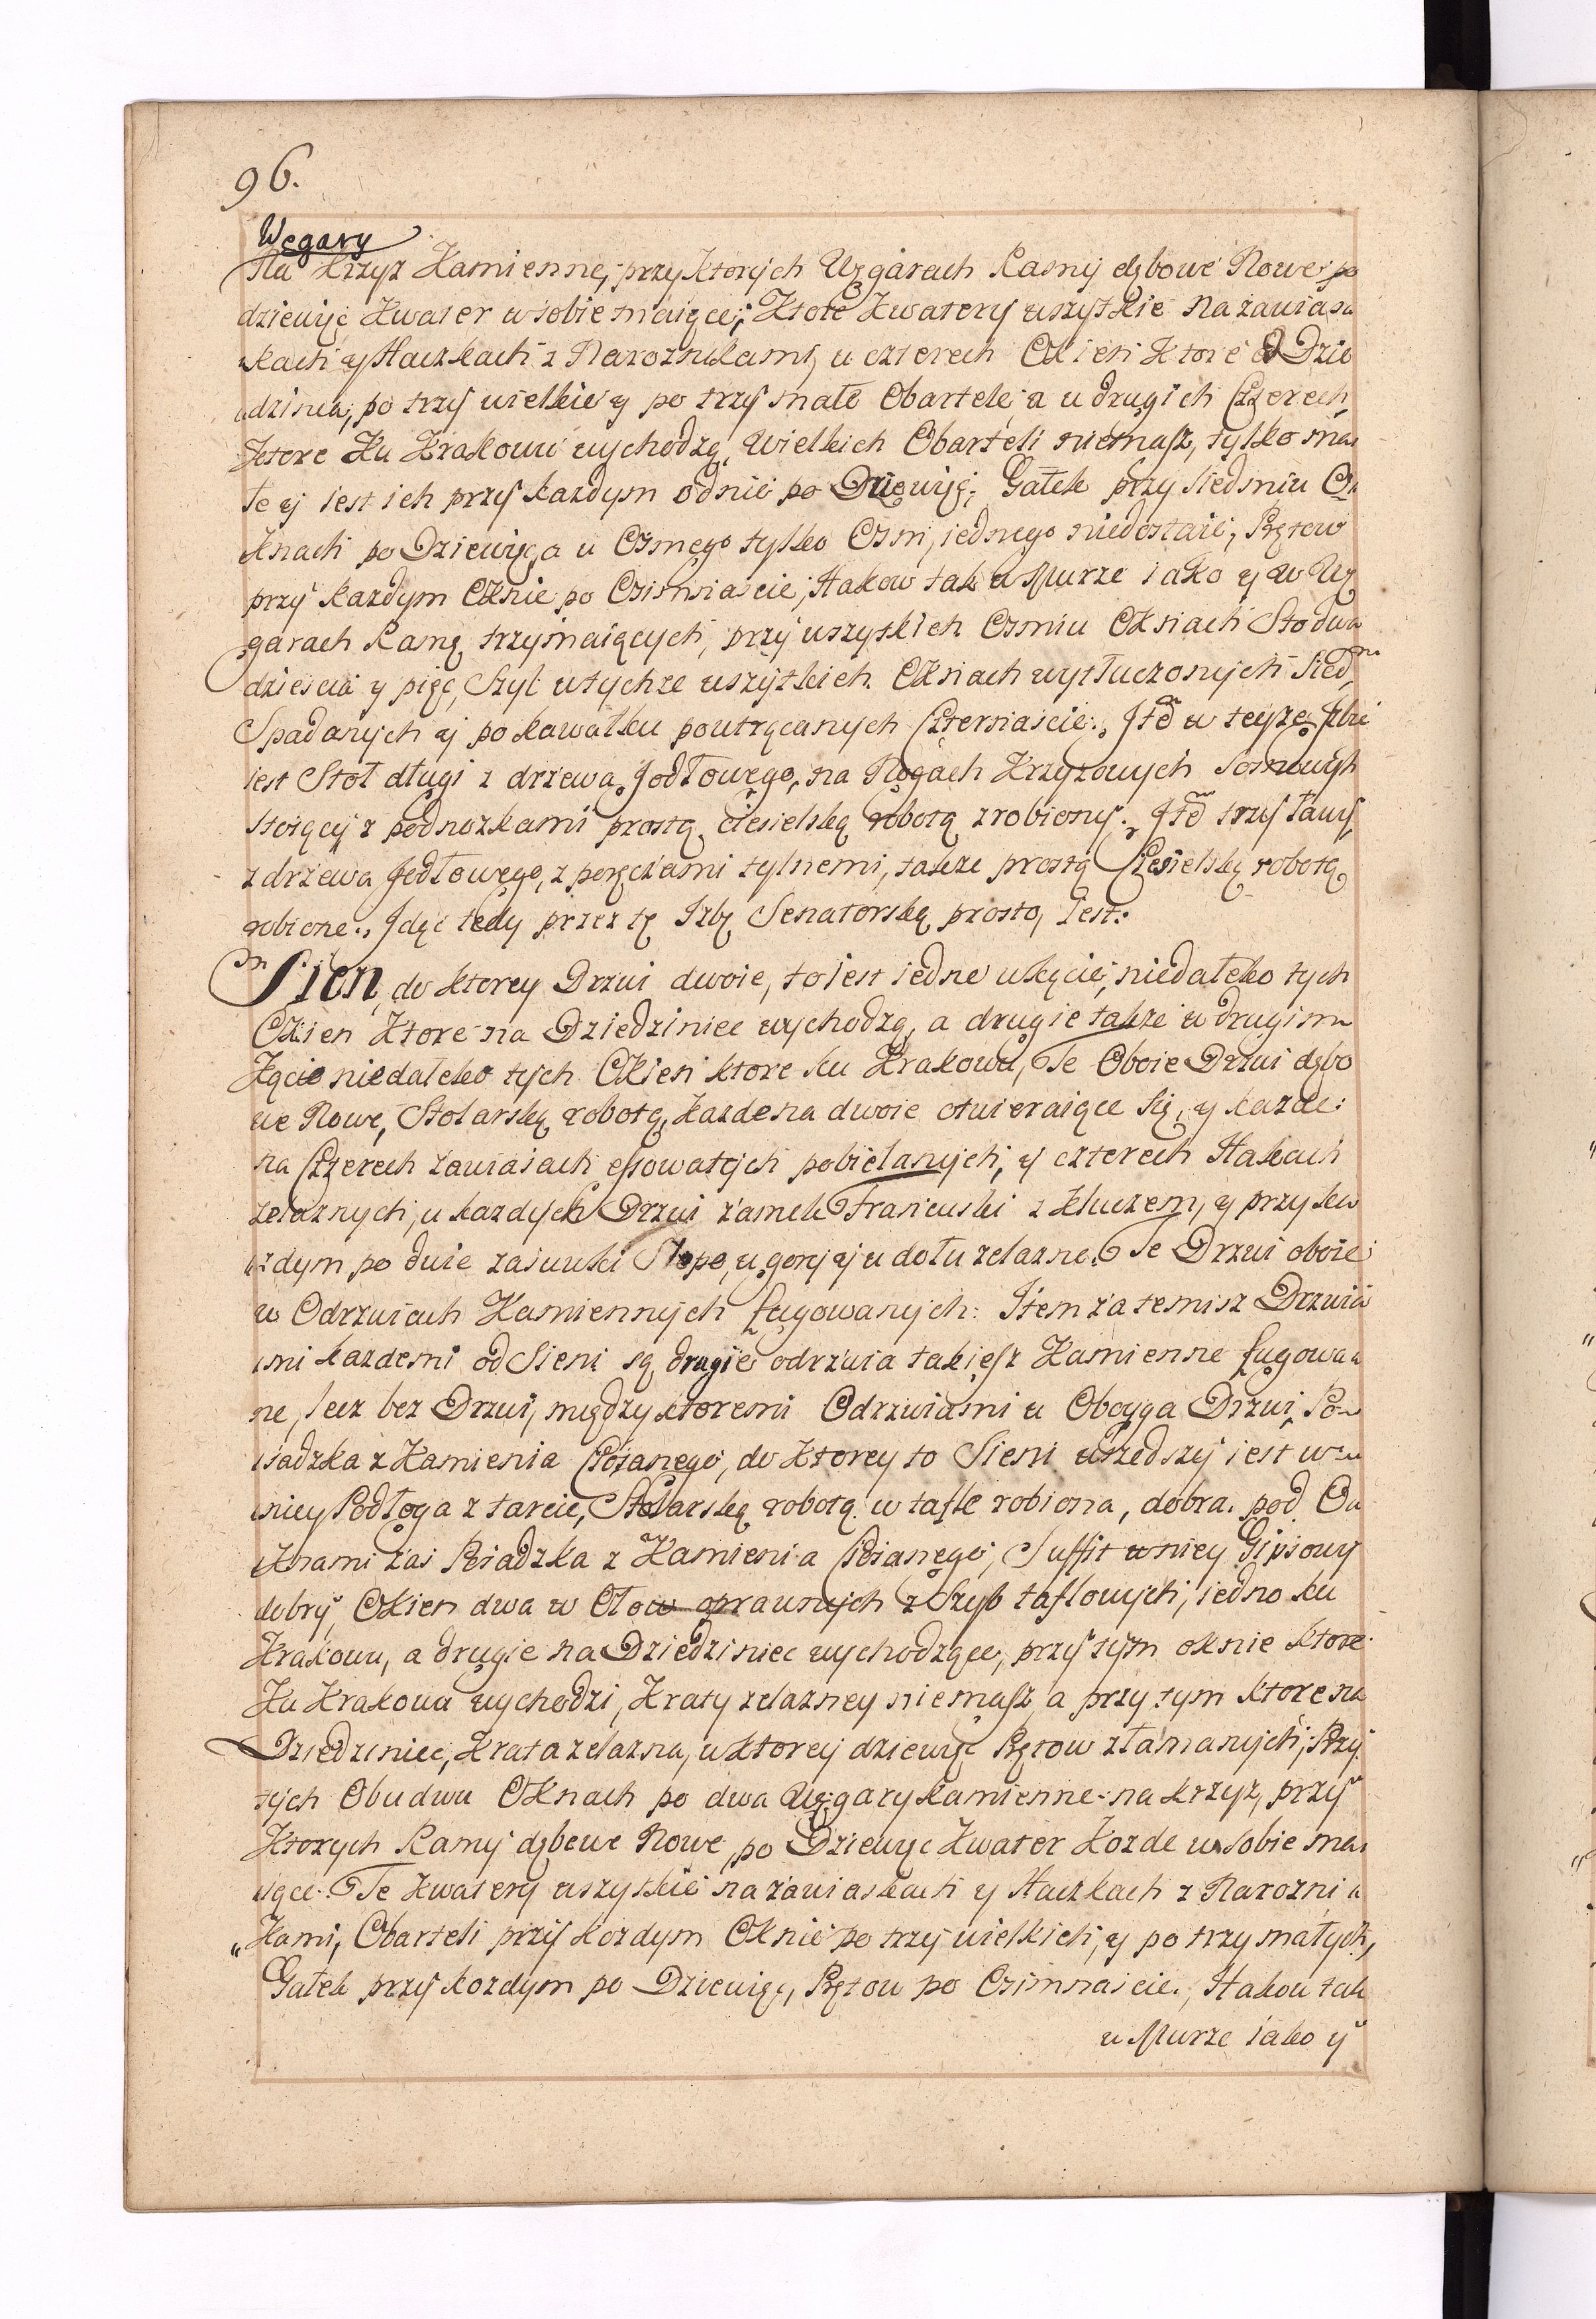 96.
Węgary
Na Krzyz Kamienne, przy ktorych Węgarach Ramy dębowe Nowe po
dziewięc Kwater w sobie maiące; Ktore Kwatery wszytkie na zawias
kach y Haczkach z Naroznikami, u czterech Okien Ktore od Dzie
dzinca, po trzy wielkie y po trzy małe Obartele a u drugich Czterech,
Ktore Ku Krakowu wychodzą, Wielkich Obarteli niemasz, tylko ma
łe y iest ich przy kazdym oknie po Dziewięc; Gałek przy siedmiu O
knach po Dziewięc, a u Osmego tylko Osm, jednego niedostaie, Prętow
przy kazdym Oknie po Osimnascie, Hakow tak w Murze iako y w Wę
garach Ramę trzymaiących, przy wszytkich Osmiu Oknach Sto dwa
dziescia y pięc, Szyb w tychze wszytkich Oknach wytłuczonych Siedm
Spadanych y po kawałku poutrącanych Czternascie. Itd w teyze Izbie
iest Stoł długi z drzewa Jodłowego, na Nogach Krzyzowych Sosnowych
stoiący z podnozkami prostą ciesielską robotą zrobiony. Itd trzy ławy
z drzewa Jodłowego, z poręczami tylnemi, takze prostą Ciesielską robotą
robione. Idąc tedy przez tę Izbę Senatorską prosto, iest.
Sien, do ktorey Drzwi dwoie, to iest iedne w kącie, niedaleko tych
Okien Ktore na Dziedziniec wychodzą, a drugie takze w drugim
Kącie niedaleko tych Okien ktore ku Krakowu, Te Oboie Drzwi dębo
we Nowe, Stolarską robotą, kazde na dwoie otwieraiące się, y kazde
na Czterech zawiasach essowatych pobielanych, y czterech Hakach
zelaznych, u kazdych Drzwi zamek Francuski z Kluczem, y przy ka
zdym po dwie zasuwki Slepe, u gory y u dołu zelazne. Te Drzwi oboie
w Odrzwiach Kamiennych fugowanych: Item za temisz Drzwia
mi kazdemi od Sieni są drugie odrzwia takiesz Kamienne fugowa
ne, lecz bez Drzwi, między ktoremi Odrzwiami u Oboyga Drzwi, Po
sadzka z Kamienia Ciosanego, do Ktorey to Sieni wszedszy iest w
niey Podłoga z tarcic, Stolarską robotą w tafle robiona, dobra. pod O
knami zas Posadzka z Kamienia Ciosanego, Suffit w niey Gipsowy
dobry, Okien dwa w Ołow oprawnych z Szyb taflowych, iedno ku
Krakowu, a drugie na Dziedziniec wychodzące, przy tym oknie ktore
Ku Krakowu wychodzi, Kraty zelazney niemasz, a przy tym ktore na
Dziedziniec, Krata zelazna, w ktorey dziewięc Prętow złamanych, Przy
tych Obudwu Oknach po dwa Węgary kamienne na krzyz, przy
Ktorych Ramy dębowe Nowe, po Dziewięc Kwater Kozde w sobie ma
iące. Te Kwatery wszytkie na zawiaskach y Haczkach z Narozni
„kami, Obarteli przy kozdym Oknie po trzy wielkich, y po trzy małych,
Gałek przy kozdym po Dziewięc, Prętow po Osimnascie, Hakow tak
w Murze iako y